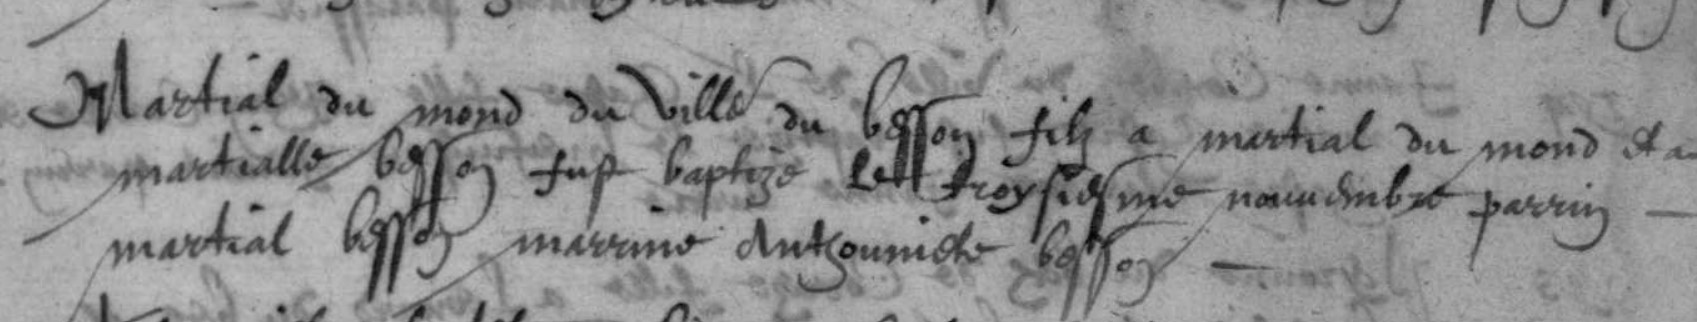 Martial du mond du Ville du besson filz a martial du mond et a
martialle besson fust baptize le troysiesme nouuembre parrin
martial besson marrine Anthouniete besson